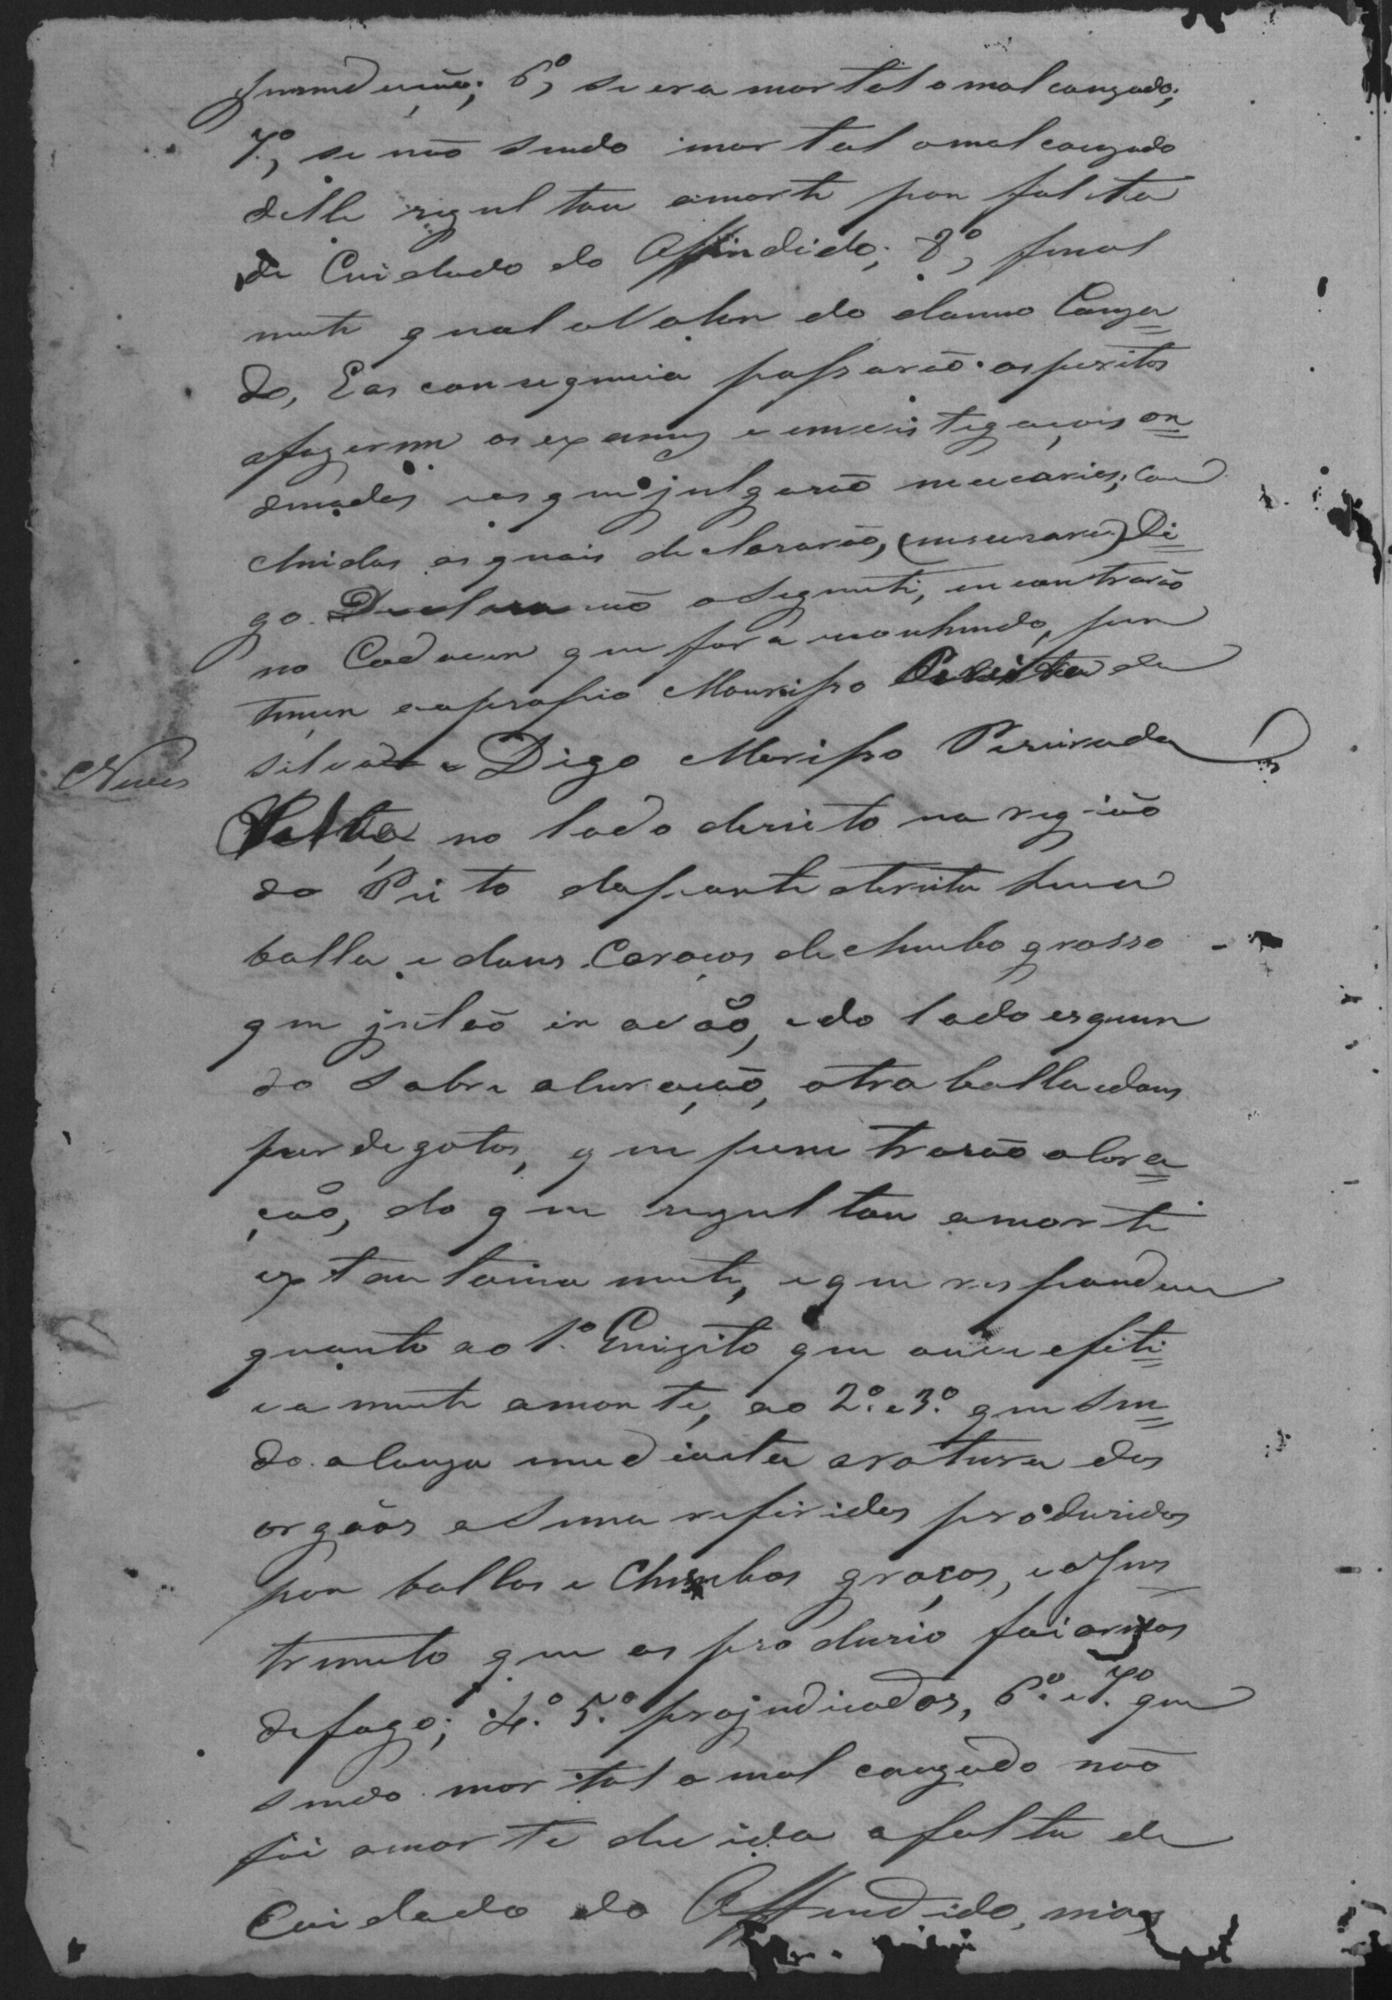 6º, se era mortal o mal cauzado;
7º, se não sendo mortal o mal cauzado
delle rezultou a morte por falta
de Cuidado do Offendido; 8º, final
mente qual o Valor do damno Cauza=
do, E as consequencia passarão os peritos
afazerem os exames e investigaçois or=
denados e as que julgarão necessarias; con
cluidas as quais declararão, Di=
go Declararão o seguinte, encontrarão
no Cadaver que fora reconhecido, per
tencer ao proprio da
Silva e Digo Pereira da
no lado dereito na região
do Peito da parte dereita huma
balla e dous Caroços de chumbo grosso
que e do lado esquer
do Sobre o Coração, otra balla e dous
perdegotos, que penetrarão o Cora=
ção, do que rezultou a morte
extantaniamente, e que responderão
quanto ao 1º Quizito que ouve efeti=
vamente a morte, ao 2º e 3º que Sen=
do a Cauza mediata a rotura dos
orgãos a Sima referidos produzidos
por ballas e Chumbos groços, e o Ins
trumento que os produzio foi armas
de fogo; 4º 5º prejudicados, 6º e 7º que
sendo mortal o mal cauzado não
foi a morte devida a falta de
Cuidado do Offendido, mas
Neves